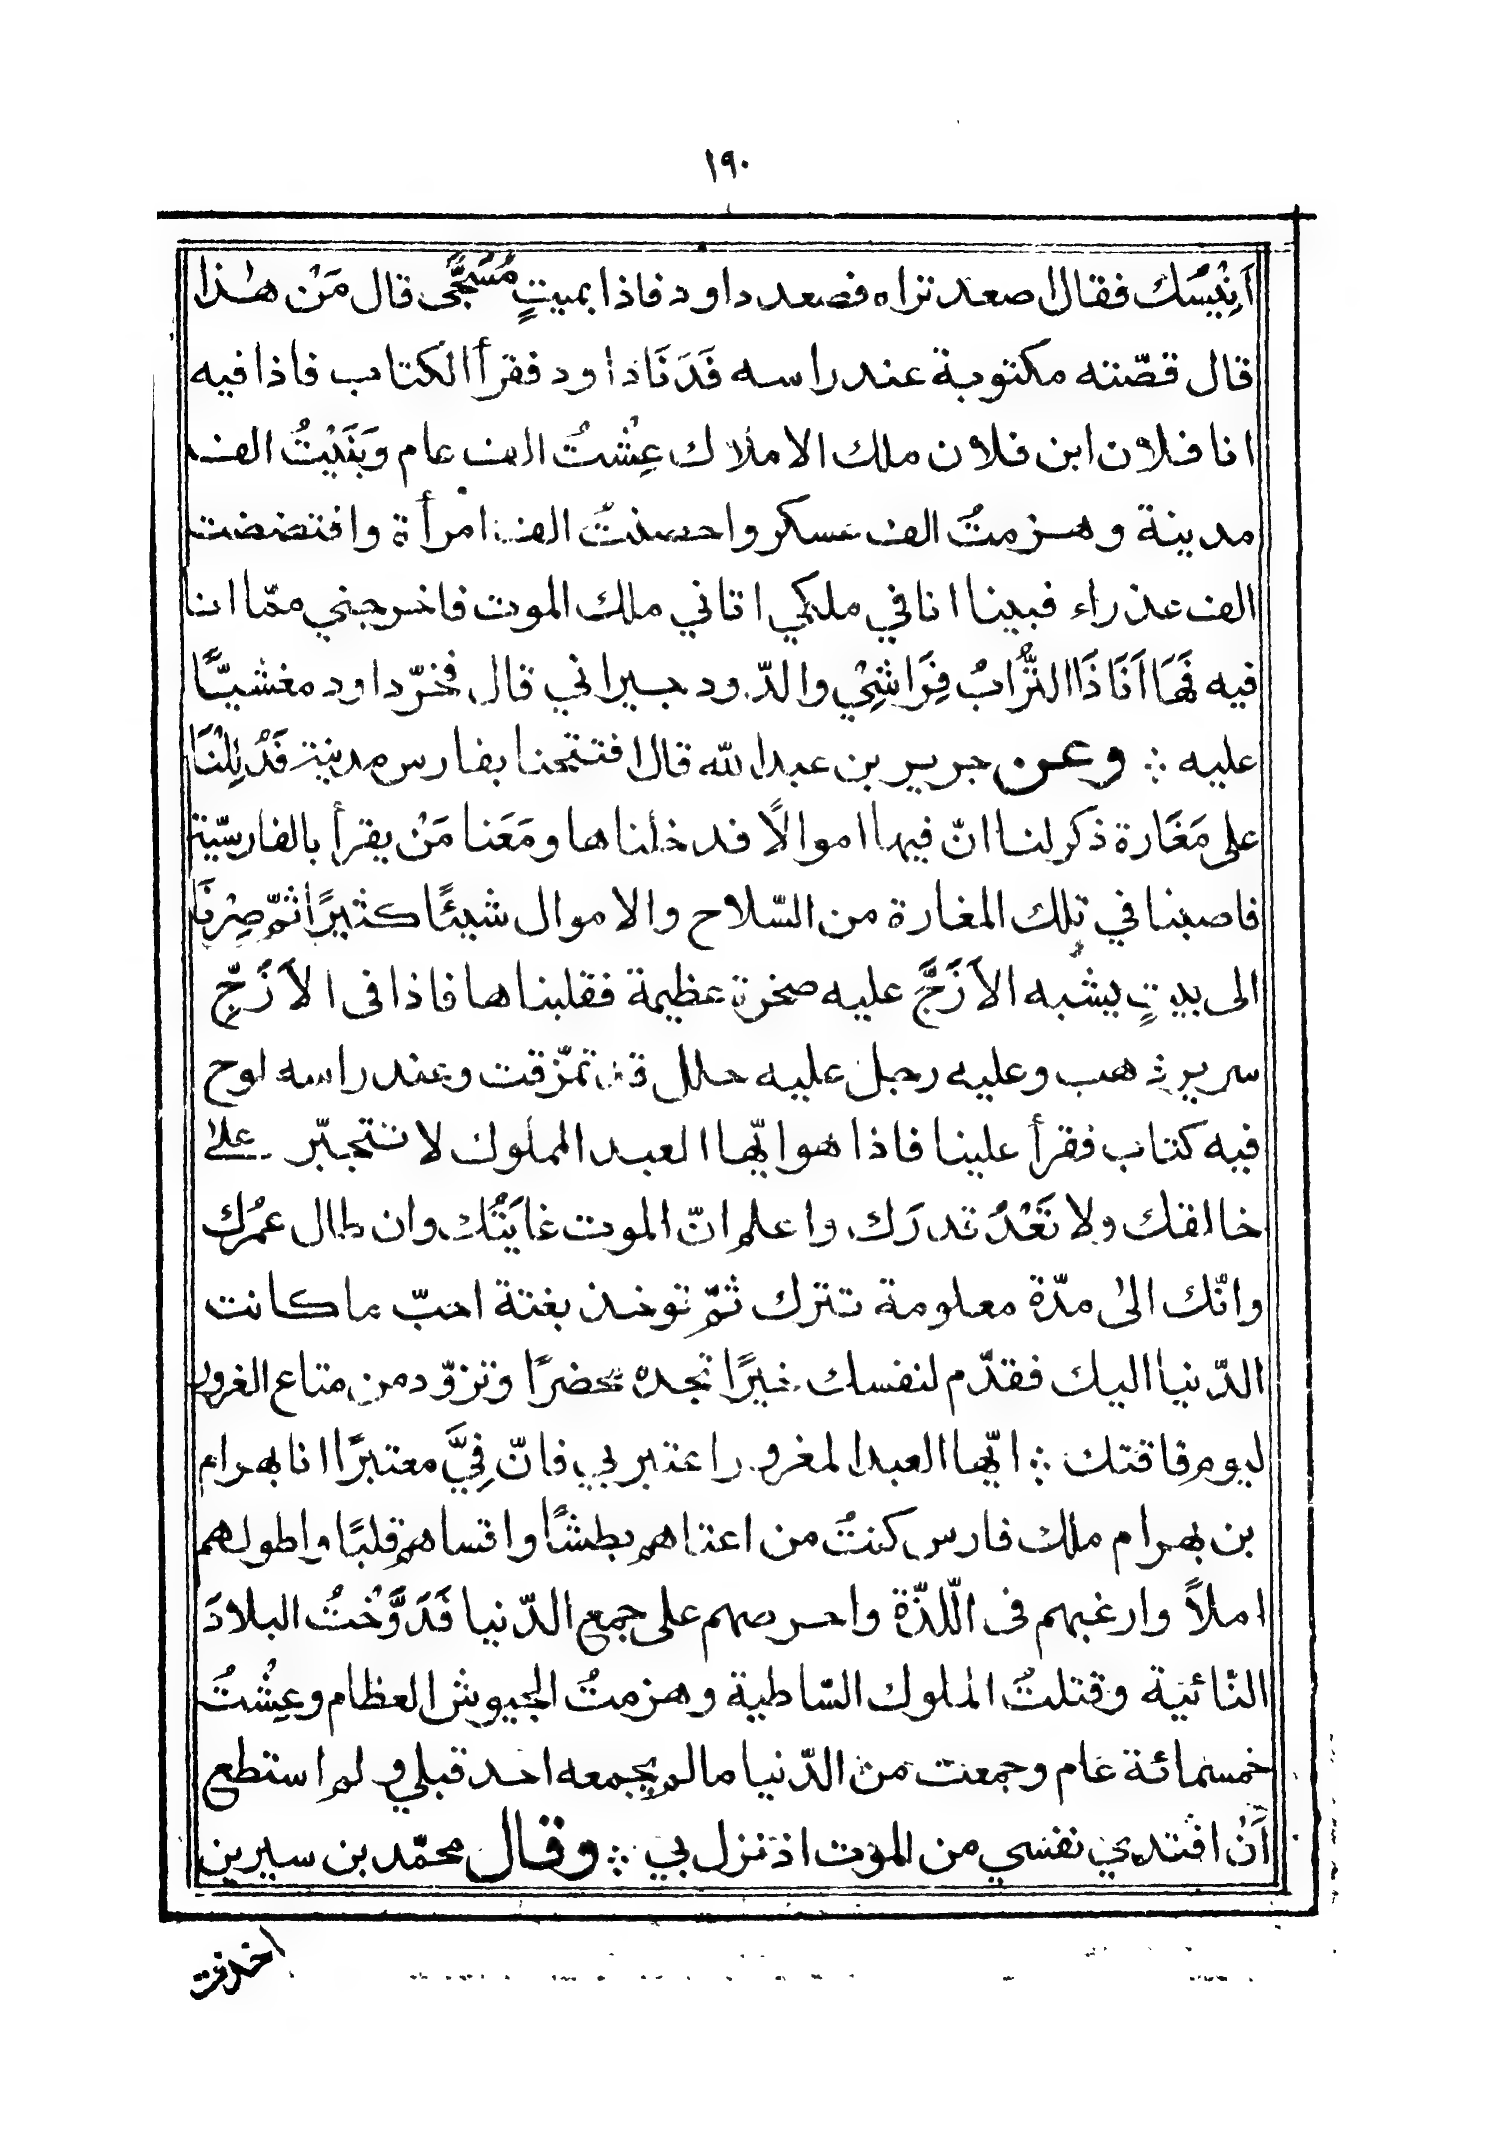 ١٩٠
اَنِيْسُك فقال اصعد تراه فصعد داود فاذا بميتٍ مُسَجًّى قال مَنْ هٰذا
قال قصّته مكتوبة عند راسه فَدَنَا داود فقرأ الكتاب فاذا فيه
انا فلان ابن فلان ملك الاملاك عِشْتُ الف عام وَبَنَيْتُ الف
مدينة وهزمتُ الف عسكر واحصنتُ الف امرأة وافتضضت
الف عذراء فبينا انا في ملكي اتاني ملك الموت فاخرجني ممّا انا
فيه فَهَا اَنَا ذَا التُّرَابُ فِرَاشِيْ والدّود جيراني قال فخرّ داود مغشيًّا
عليه ؞ وعن جرير بن عبد الله قال افتتحنا بفارس مدينة فَدُلِلْنَا
على مَغَارة ذكر لنا انّ فيها اموالًا فدخلناها ومَعَنا مَنْ يقرأ بالفارسيّة
فاصبنا في تلك المغارة من السّلاح والاموال شيئًا كثيرًا ثمّ صِرْنَا
الى بيتٍ يشبه الاَزَجَّ عليه صخرة عظيمة فقلبناها فاذا فى الاَزَجِّ
سرير ذهب وعليه رجل عليه حلل قد تمزّقت وعند راسه لوح
فيه كتاب فقرأ علينا فاذا هو ايّها العبد المملوك لا تتجبّر على
خالقك ولا تَعْدُ قدرَك واعلم انّ الموت غايَتُك وان طال عمُرك
وانّك الىٰ مدّة معلومة تترك ثمّ توخذ بغتة احبّ ما كانت
الدّنيا اليك فقدّم لنفسك خيرًا تجده محضرًا وتزوّد من متاع الغرور
ليوم فاقتك ؞ ايّها العبد المغرور اعتبر بي فانّ فِيَّ معتبرًا انا بهرام
بن بهرام ملك فارس كنتُ من اعتاهم بطشًا واقساهم قلبًا واطولهم
املاً وارغبهم فى اللّذّة واحرصهم على جمع الدّنيا فَدَوَّخْتُ البلادَ
النّائية وقتلتُ الملوك السّاطية وهزمتُ الجيوش العظام وعِشْتُ
خمسمائة عام وجمعت من الدّنيا ما لم يجمعه احد قبلي ولم استطع
اَنْ افتدي نفسي من الموت اذ نزل بي ؞ وقال محمّد بن سيرين